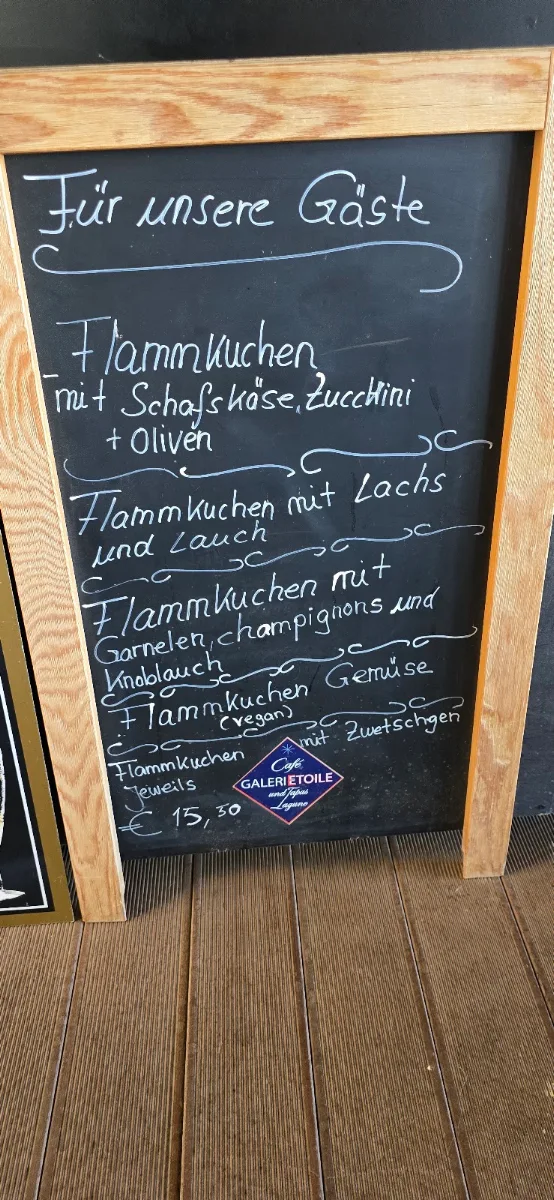 Für unsere Gäste
Flammkuchen
mit Schafskäse, Zucchini
+ Oliven
Flammkuchen mit Lachs
und Lauch
Flammkuchen mit
Garnelen, champignons und
Knoblauch
Flammkuchen Gemüse
(vegan)
Flammkuchen mit Zwetschgen
Jeweils
€ 15,50
Café
GALERIE ETOILE
und Tapas
Lagune